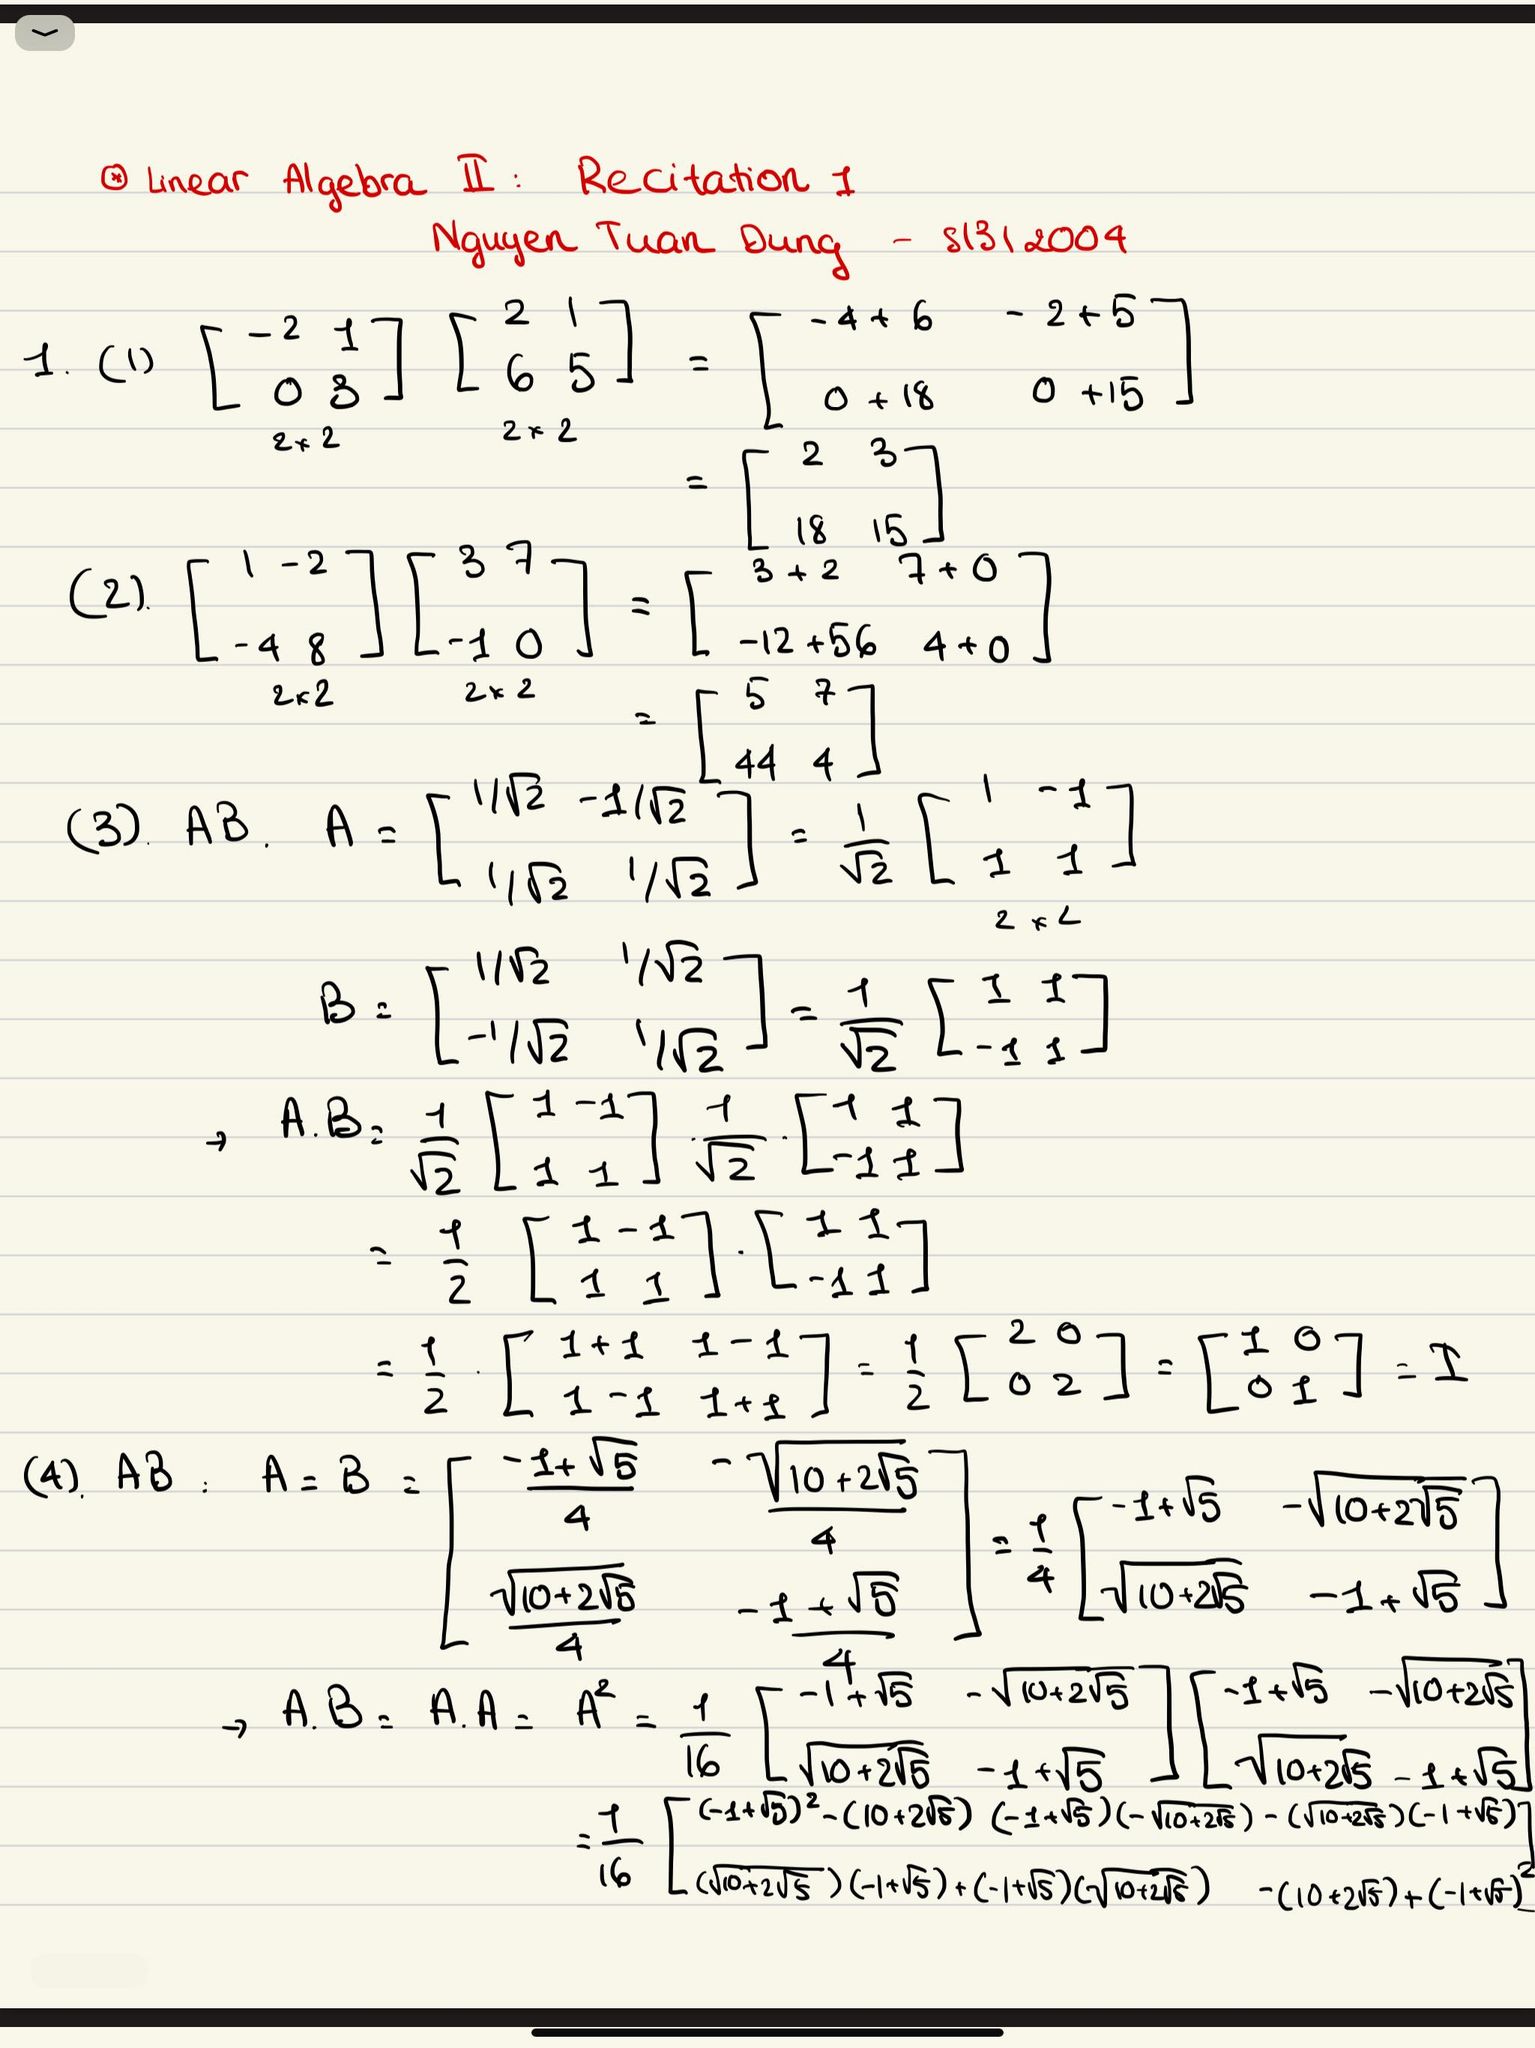 ⊛ Linear Algebra II: Recitation 1
Nguyen Tuan Dung - S1312004
1. (1) [-2 1; 0 3] [2 1; 6 5] = [-4+6 -2+5; 0+18 0+15]
2×2 2×2
= [2 3; 18 15]
(2). [1 -2; -4 8] [3 7; -1 0] = [3+2 7+0; -12+56 4+0]
2×2 2×2
= [5 7; 44 4]
(3). AB. A = [1/√2 -1/√2; 1/√2 1/√2] = 1/√2 [1 -1; 1 1]
2×2
B = [1/√2 1/√2; -1/√2 1/√2] = 1/√2 [1 1; -1 1]
→ A.B = 1/√2 [1 -1; 1 1] . 1/√2 . [1 1; -1 1]
= 1/2 [1 -1; 1 1] . [1 1; -1 1]
= 1/2 . [1+1 1-1; 1-1 1+1] = 1/2 [2 0; 0 2] = [1 0; 0 1] = I
(4). AB: A = B = [(-1+√5)/4 -√(10+2√5)/4; √(10+2√5)/4 (-1+√5)/4] = 1/4 [-1+√5 -√(10+2√5); √(10+2√5) -1+√5]
→ A.B = A.A = A² = 1/16 [-1+√5 -√(10+2√5); √(10+2√5) -1+√5] [-1+√5 -√(10+2√5); √(10+2√5) -1+√5]
= 1/16 [(-1+√5)²-(10+2√5) (-1+√5)(-√(10+2√5))-(√(10+2√5))(-1+√5); (√(10+2√5))(-1+√5)+(-1+√5)(√(10+2√5)) -(10+2√5)+(-1+√5)²]